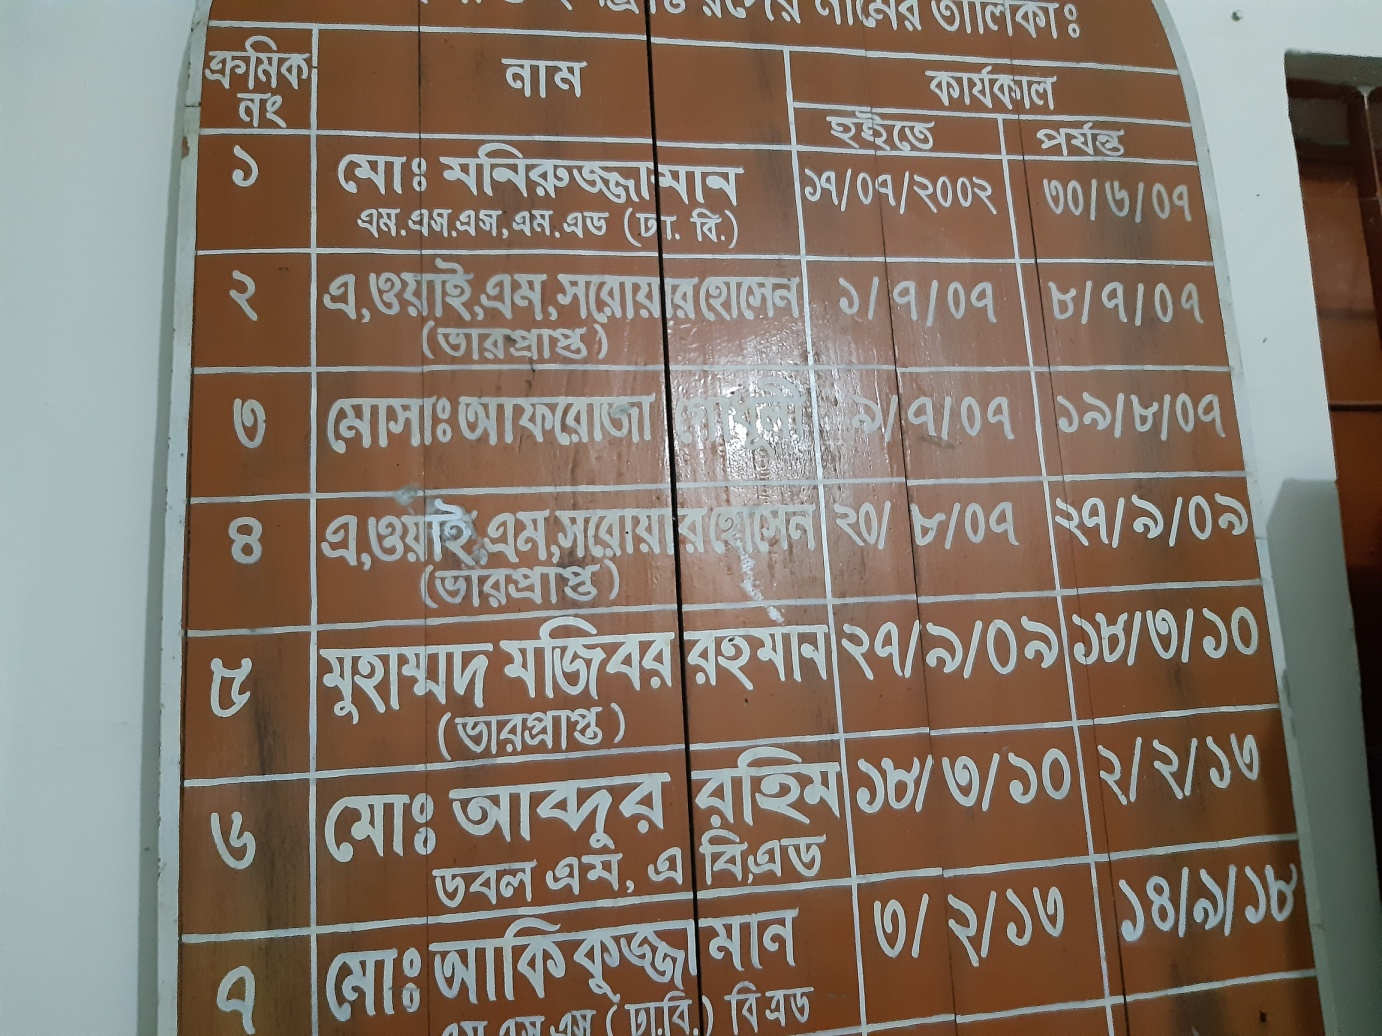 নামের তালিকাঃ
ক্রমিক নং নাম কার্যকাল
হইতে পর্যন্ত
১ মোঃ মনিরুজ্জামান ১৭/০৭/২০০২ ৩০/৬/০৭
এম.এস.এস,এম.এড (ঢা. বি.)
২ এ,ওয়াই,এম,সরোয়ার হোসেন ১/৭/০৭ ৮/৭/০৭
(ভারপ্রাপ্ত)
৩ মোসাঃ আফরোজা ৯/৭/০৭ ১৯/৮/০৭
৪ এ,ওয়াই,এম,সরোয়ার হোসেন ২০/৮/০৭ ২৭/৯/০৯
(ভারপ্রাপ্ত)
৫ মুহাম্মদ মজিবর রহমান ২৭/৯/০৯ ১৮/৩/১০
(ভারপ্রাপ্ত)
৬ মোঃ আব্দুর রহিম ১৮/৩/১০ ২/২/১৩
ডবল এম, এ বি,এড
৭ মোঃ আকিকুজ্জামান ৩/২/১৩ ১৪/৯/১৮
এম এস এস (ঢা.বি.) বি এড